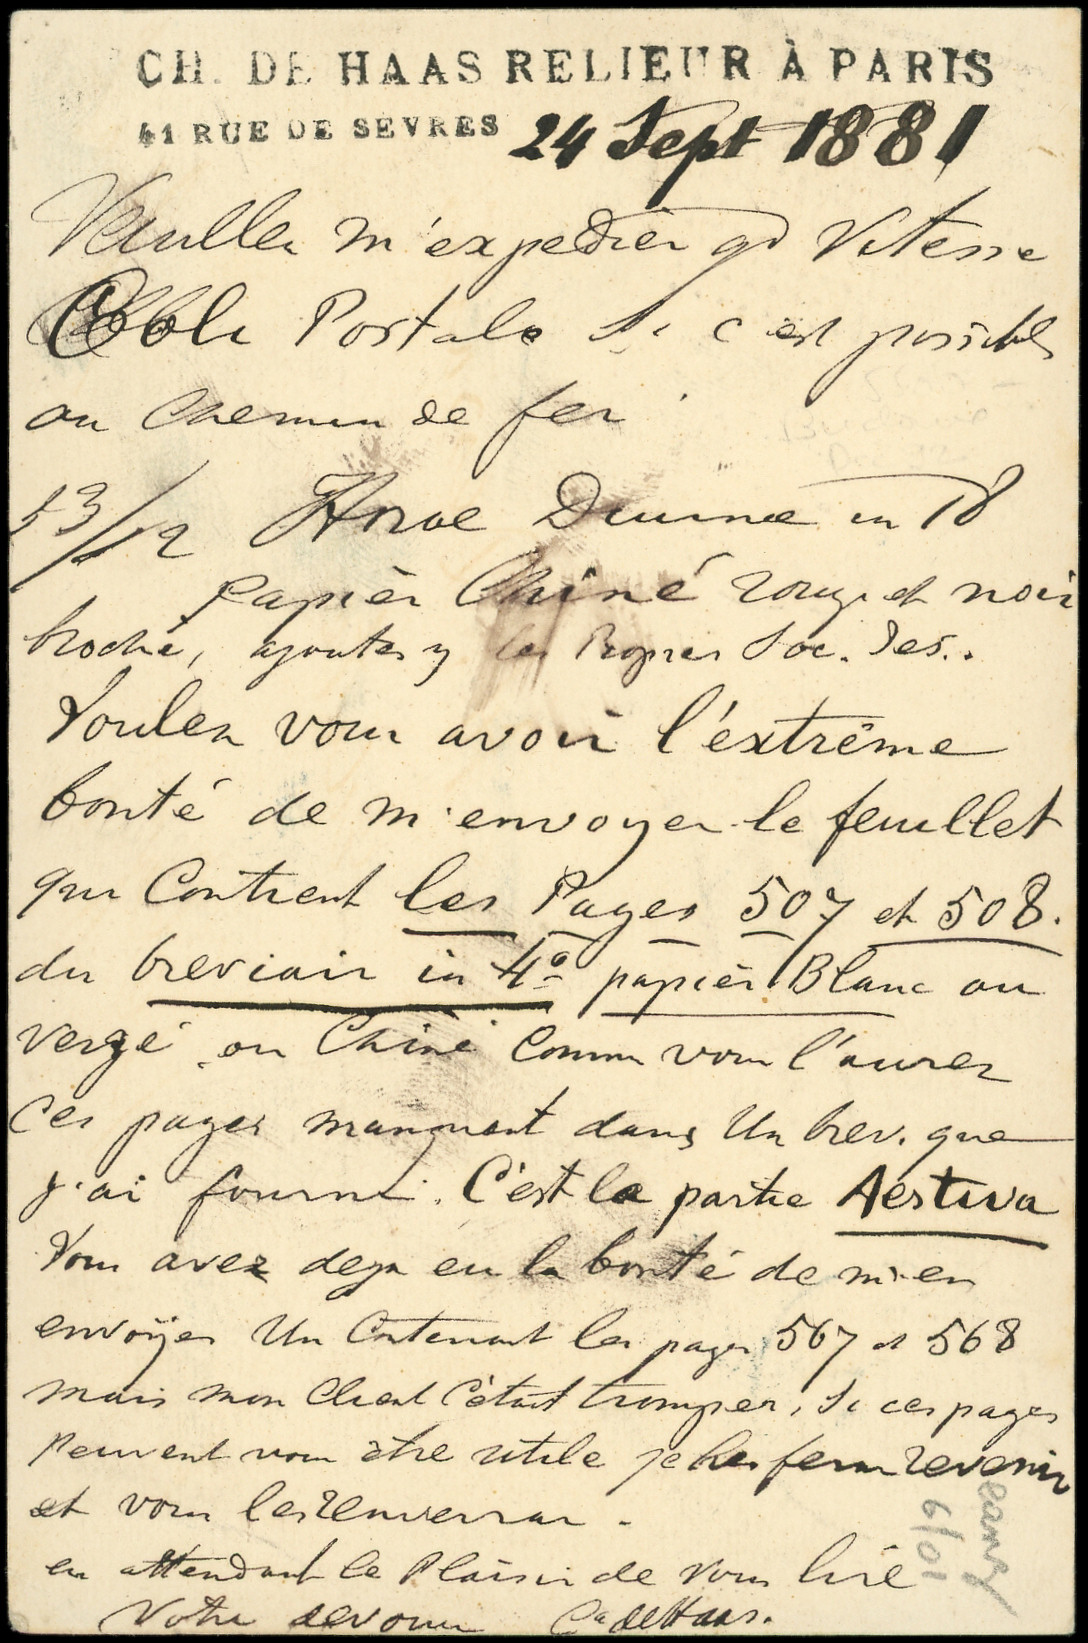 CH. DE HAAS RELIEUR À PARIS
41 RUE DE SEVRES 24 Sept 1881
Veuillez m'expedier gd Vitesse
Postale Si c'est possible
ou Chemin de fer
13/12 Horae Diurnae in 18
papier Chiné rouge et noir
broché, ajoutez y les Propres Soc. Jes..
Voulez vous avoir l'éxtrême
bonté de m'envoyer le feuillet
qui Contient les Pages 507 et 508.
du breviair in 4º papier Blanc ou
vergé ou Chiné Comme vous l'aurez
Ces pages manquent dans Un brev. que
j'ai fourni. C'est la partie Aestiva
Vous avez deja eu la bonté de m'en
envoÿer Un Contenant les pages 567 et 568
mais mon Client C'était tromper, Si ces pages
peuvent vous être utile je les ferai revenir
et vous les renverrai.
en attendant le Plaisir de Vous lire
Votre devoué Ch de Haas.
6/01